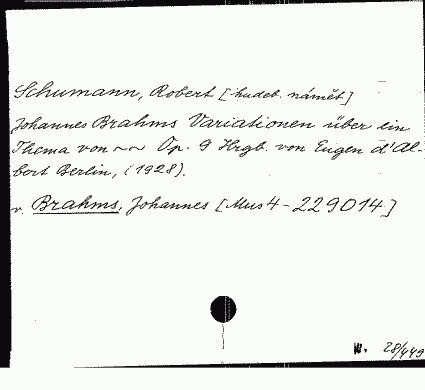 Schumann, Robert [hudeb. námět]
Johannes Brahms Variationen über ein
Thema von ~~ Op. 9 Hrgb. von Eugen d'Al-
bert Berlin, (1928).
v. Brahms, Johannes [Mus 4-229014]
W. 28/449